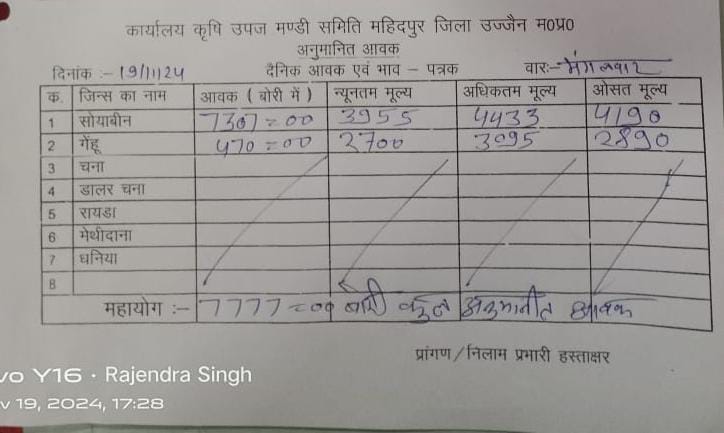 कार्यालय कृषि उपज मण्डी समिति महिदपुर जिला उज्जैन म०प्र०
अनुमानित आवक
दिनांक :- 19/11/24 दैनिक आवक एवं भाव – पत्रक वारः- मंगलवार
क. जिन्स का नाम आवक ( बोरी में ) न्यूनतम मूल्य अधिकतम मूल्य ओसत मूल्य
1 सोयाबीन 7307=00 3955 4433 4190
2 गेंहू 470=00 2700 3095 2890
3 चना
4 डालर चना
5 रायडा
6 मेथीदाना
7 धनिया
8
महायोग :- 7777=00 बोरी कुल अनुमानीत आवक
प्रांगण/निलाम प्रभारी हस्ताक्षर
vo Y16 · Rajendra Singh
v 19, 2024, 17:28